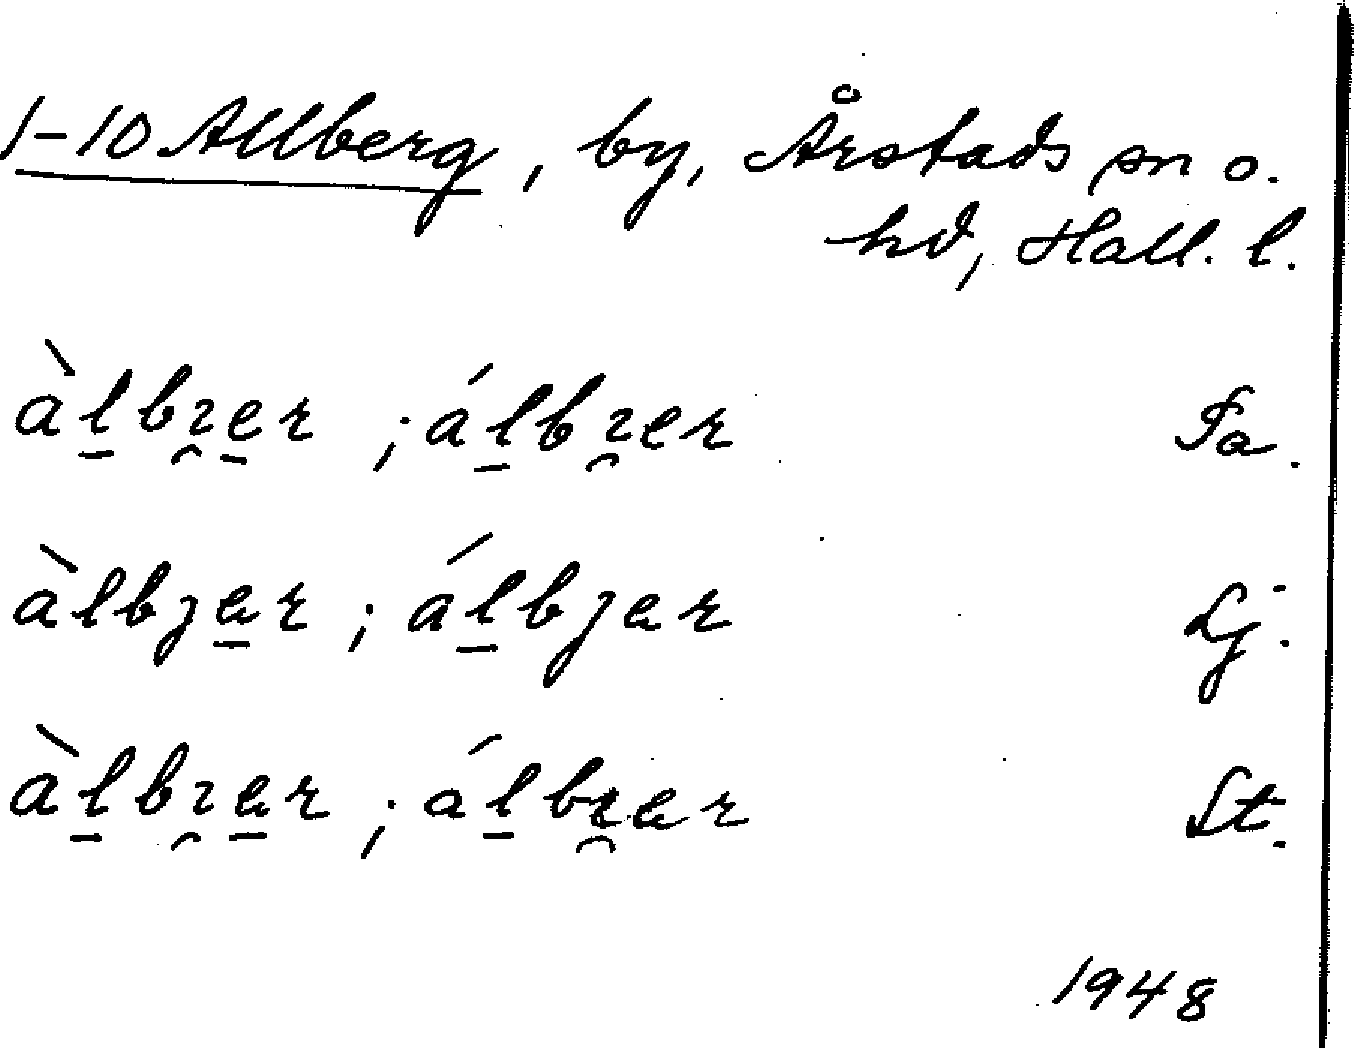 1-10 Allberg, by, Årstads sn o.
hd, Hall. l.
àl̠bɿ̯e̠r ; ál̠bɿ̯er Fa.
àlbȷa̠r ; ál̠bȷar Lj.
àl̠bɿ̯a̠r ; ál̠bɿ̯ar St.
1948